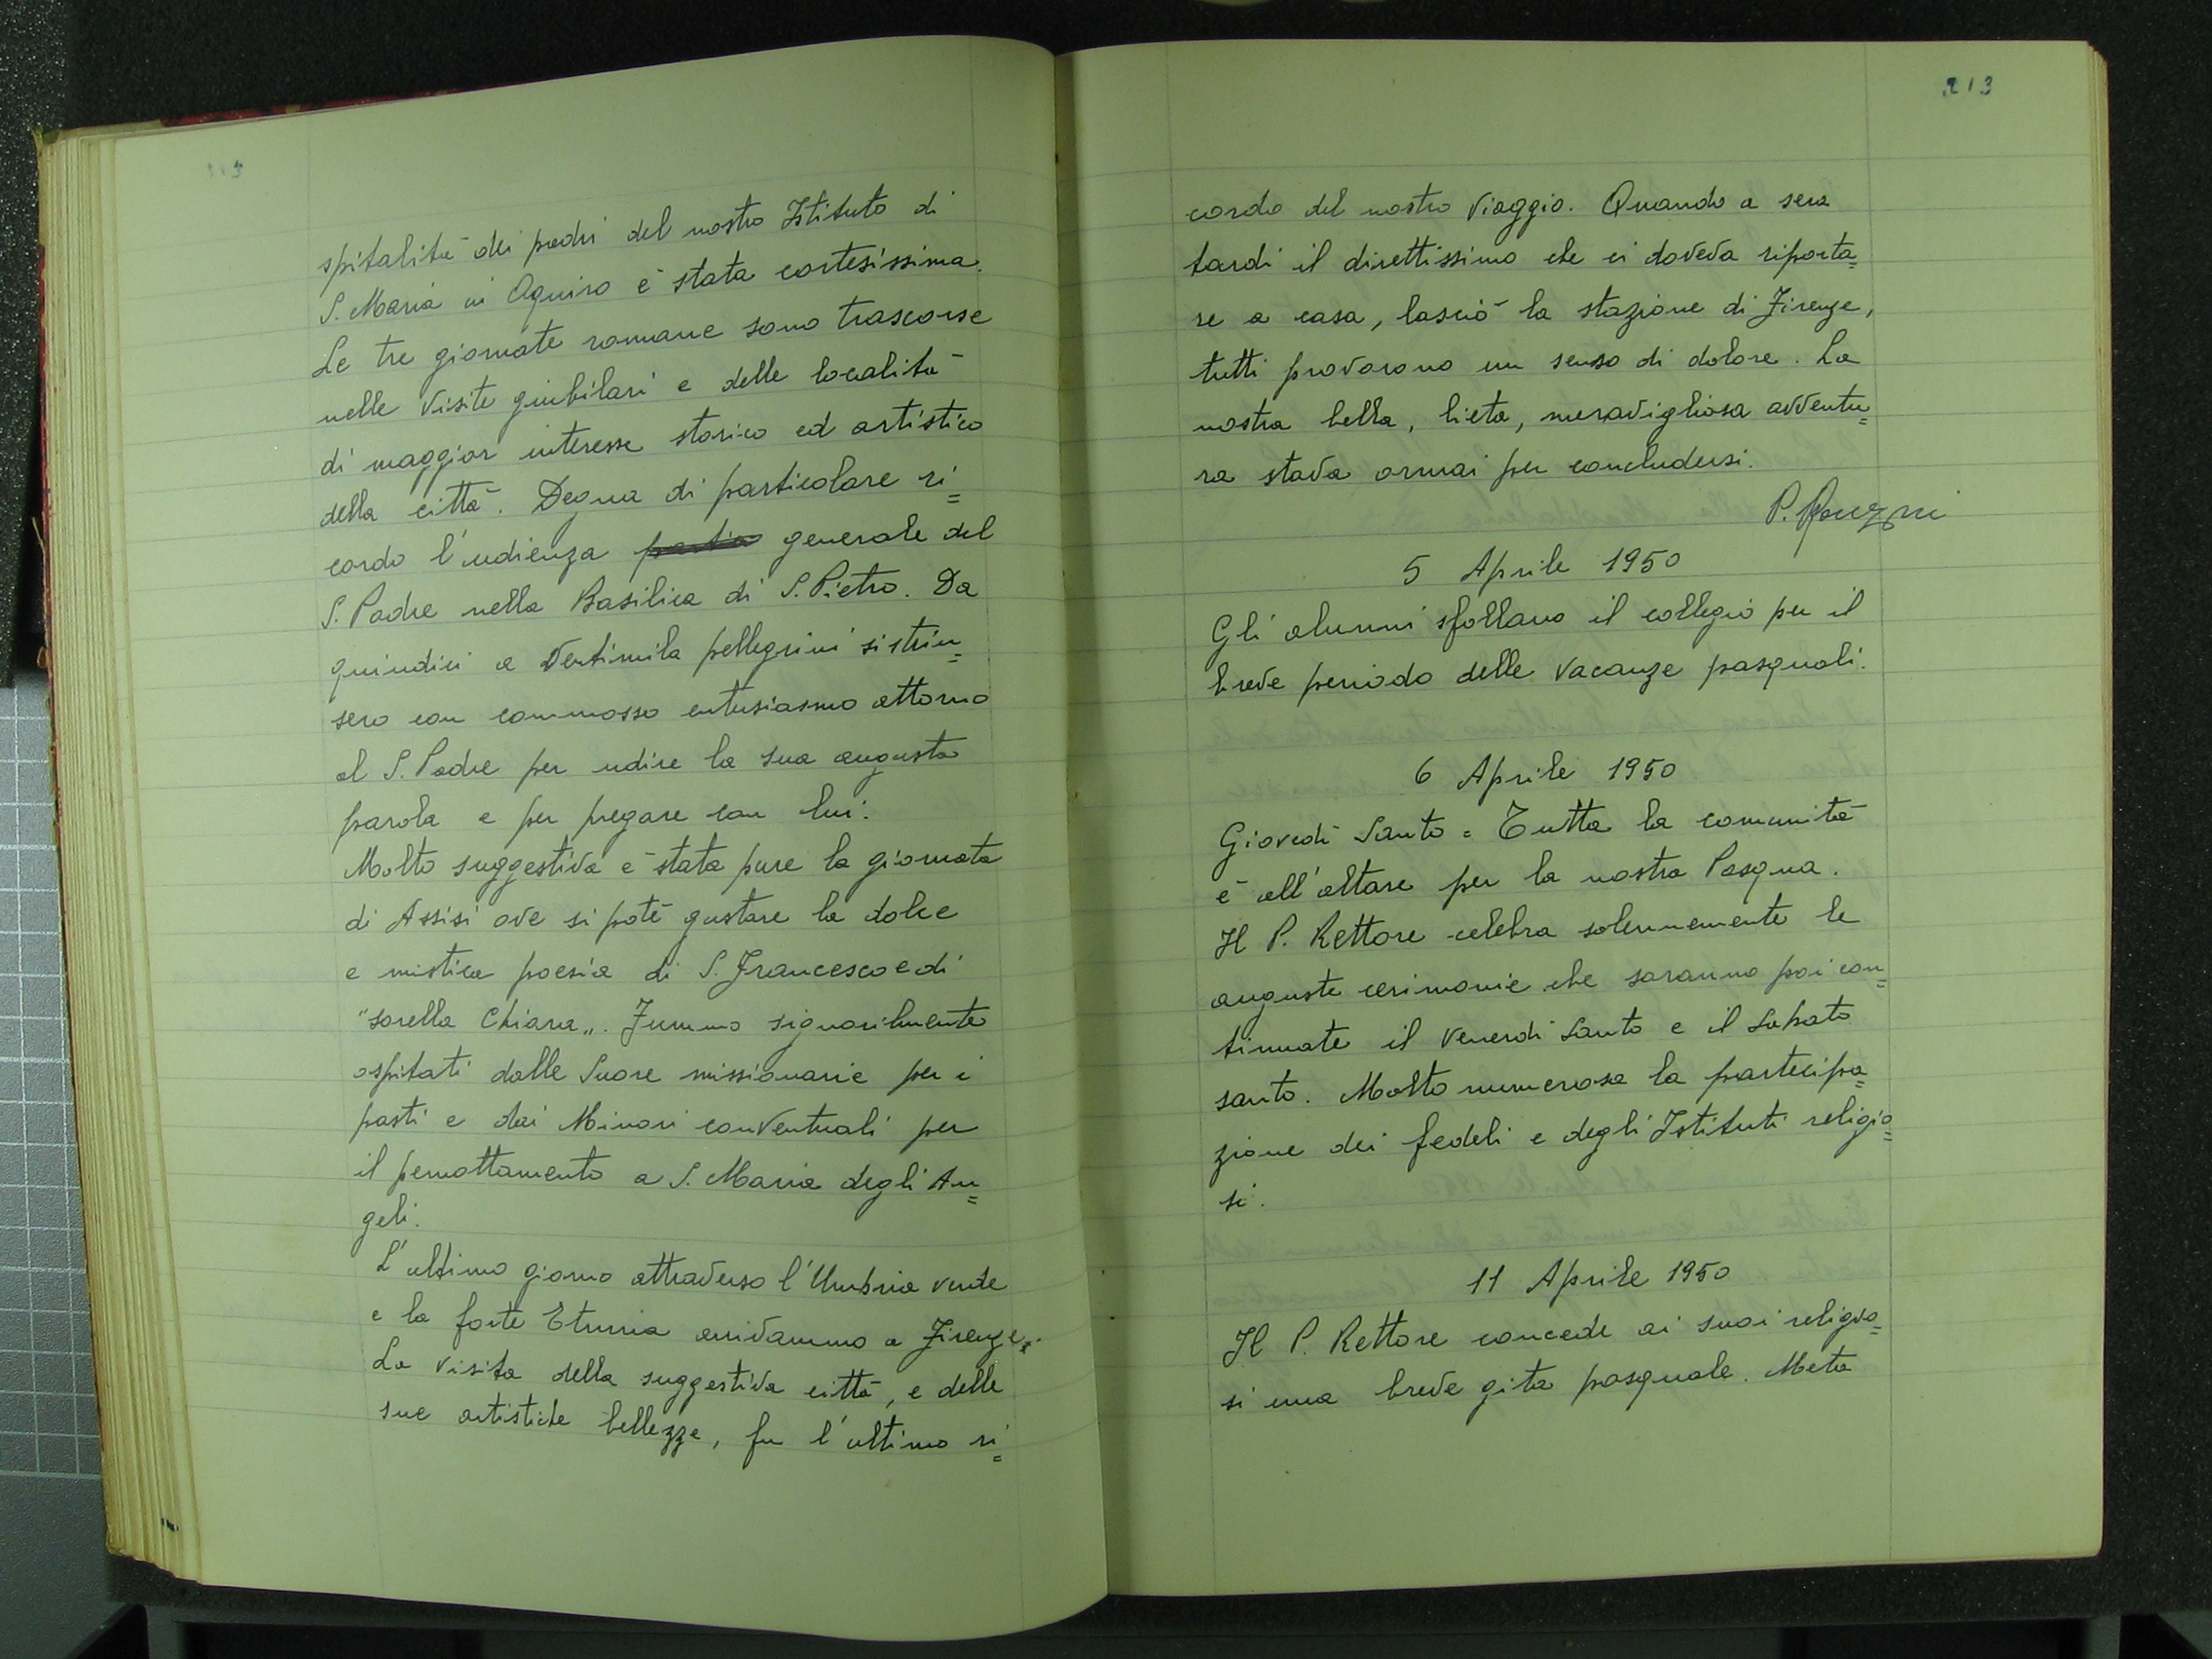 spitalità dei padri del nostro Istituto di
S. Maria in Aquiro è stata cortesissima.
Le tre giornate romane sono trascorse
nelle visite giubilari e delle località
di maggior interesse storico ed artistico
della città. Degna di particolare ri=
cordo l'udienza generale del
S. Padre nella Basilica di S. Pietro. Da
quindici a ventimila pellegrini si strin=
sero con commosso entusiasmo attorno
al S. Padre per udire la sua augusta
parola e per pregare con lui.
Molto suggestiva è stata pure la giornata
di Assisi ove si potè gustare la dolce
e mistica poesia di S. Francesco e di
"sorella Chiara„. Fummo signorilmente
ospitati dalle Suore missionarie per i
pasti e dai Minori conventuali per
il pernottamento a S. Maria degli An=
geli.
L'ultimo giorno attraverso l'Umbria verde
e la forte Etruria arrivammo a Firenze.
La visita della suggestiva città, e delle
sue artistiche bellezze, fu l'ultimo ri=
213
cordo del nostro viaggio. Quando a sera
tardi il direttissimo che ci doveva riporta=
re a casa, lasciò la stazione di Firenze,
tutti provarono un senso di dolore. La
nostra bella, lieta, meravigliosa avventu=
ra stava ormai per concludersi.
P.
5 Aprile 1950
Gli alunni sfollano il collegio per il
breve periodo delle vacanze pasquali.
6 Aprile 1950
Giovedì Santo = Tutta la comunità
è all'altare per la nostra Pasqua.
Il P. Rettore celebra solennemente le
auguste cerimonie che saranno poi con=
tinuate il Venerdì Santo e il Sabato
santo. Molto numerosa la partecipa=
zione dei fedeli e degli Istituti religio=
si.
11 Aprile 1950
Il P. Rettore concede ai suoi religio=
si una breve gita pasquale. Meta